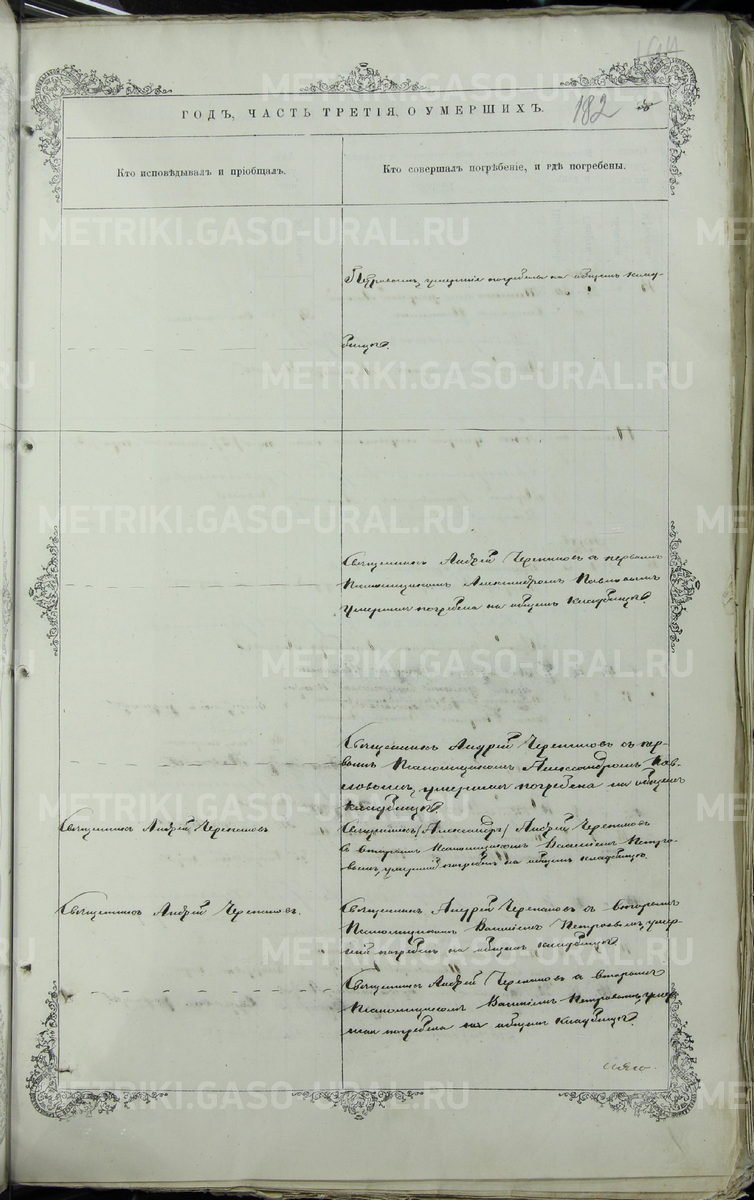 182
ГОДЪ, ЧАСТЬ ТРЕТІЯ, О УМЕРШИХЪ.
Кто исповѣдывалъ и пріобщалъ.
Кто совершалъ погрѣбеніе, и гдѣ погребены.
Петровымъ, умершіе погребены на общемъ клад-
бищѣ.
Священникъ Андрей Черепановъ съ первымъ
Псаломщикомъ Александромъ Павловымъ
умершая погребена на общемъ кладбищѣ.
Священникъ Андрей Черепановъ съ пер-
вымъ Псаломщикомъ Александромъ Пав-
ловымъ, умершая погребена на общемъ
кладбищѣ
Священникъ Андрей Черепановъ
Священникъ /Александръ/ Андрей Черепановъ
съ вторымъ Псаломщикомъ Василіемъ Петро-
вымъ, умершій погребенъ на общемъ кладбищѣ.
Священникъ Андрей Черепановъ.
Священникъ Андрей Черепановъ съ вторымъ
Псаломщикомъ Василіемъ Петровымъ, умер-
шій погребенъ на общемъ кладбищѣ
Священникъ Андрей Черепановъ съ вторымъ
Псаломщикомъ Василіемъ Петровымъ, умер-
шая погребена на общемъ кладбищѣ.
METRIKI.GASO-URAL.RU